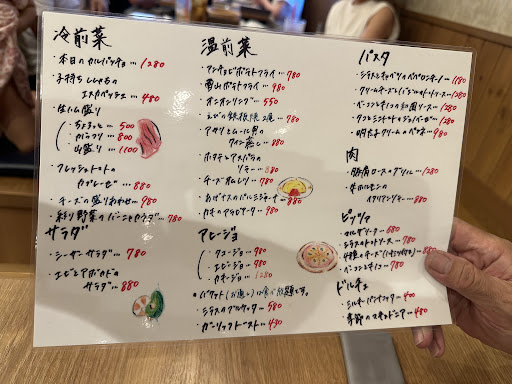 冷前菜
・本日のカルパッチョ…1280
・子持ちししゃもの
エスカベッシュ…480
・生ハム盛り
・ちょこっと…500
・かるーク…800
・山盛り…1100
・フレッシュトマトの
カプレーゼ…880
・チーズの盛りあわせ…980
・彩り野菜のバーニャカウダ…780
サラダ
・シーザーサラダ…780
・エビとアボカドの
サラダ…880
温前菜
・アンチョビポテトフライ…780
・雪山ポテトフライ…980
・オニオンリング…550
・えびの鉄板焼…780
・アサリとムール貝の
ワイン蒸し…880
・ホタテとアスパラの
ソテー…880
・チーズオムレツ…780
・あげナスのパルミジャーナ…880
・カキのグラタン…980
アヒージョ
・980
・エビージョ…980
・カキージョ…1280
・バケット(お通し)は食べ放題です。
・シラスのブルスケッタ…580
・ガーリックトースト…430
パスタ
・シラスとキャベツのペペロンチーノ…1180
・1280
・ベーコンときのこの和風ソース…1280
・980
・明太子クリームの…980
肉
・豚肩ロースのグリル…1280
・牛ホルモンの
イタリアンソテー…880
ピッツァ
・マルゲリータ…680
・シラスのトマトソース…780
・4種のチーズ(ハチミツ付き)…880
・ベーコンときのこ…780
ドルチェ
・ミルキーパンナコッタ…400
・季節のスキャッチョニア…480